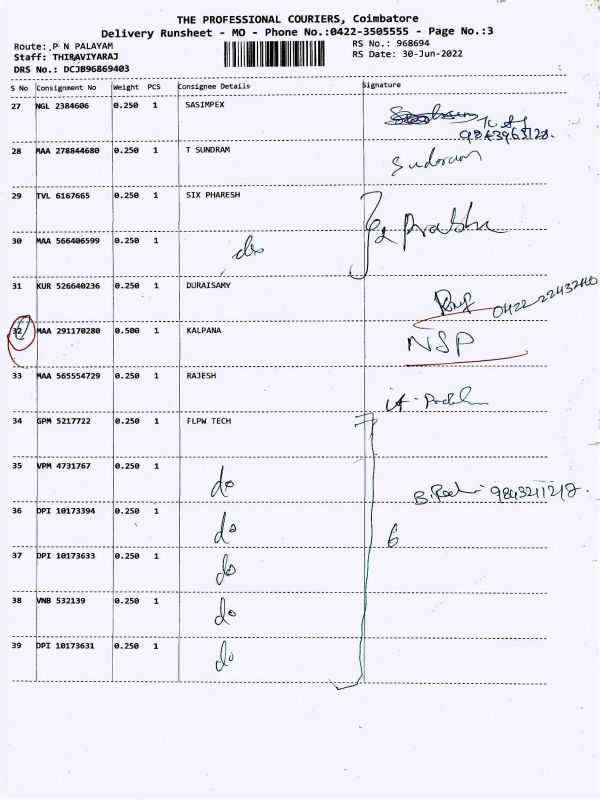 THE PROFESSIONAL COURIERS, Coimbatore
Delivery Runsheet - MO - Phone No.:0422-3505555 - Page No.:3
Route: ,P N PALAYAM
RS No.: 968694
Staff: THIRAVIYARAJ
RS Date: 30-Jun-2022
DRS No.: DCJB96869403
S No Consignment No Weight PCS Consignee Details Signature
27 NGL 2384606 0.250 1 SASIMPEX
28 MAA 278844680 0.250 1 T SUNDRAM
29 TVL 6167665 0.250 1 SIX PHARESH
30 MAA 566406599 0.250 1 do
31 KUR 526640236 0.250 1 DURAISAMY
32 MAA 291170280 0.500 1 KALPANA NSP
33 MAA 565554729 0.250 1 RAJESH
34 GPM 5217722 0.250 1 FLPW TECH
35 VPM 4731767 0.250 1 do
36 DPI 10173394 0.250 1 do 6
37 DPI 10173633 0.250 1 do
38 VNB 532139 0.250 1 do
39 DPI 10173631 0.250 1 do